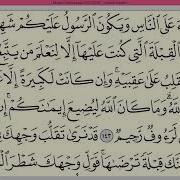 ءَ عَلَى ٱلنَّاسِ وَيَكُونَ ٱلرَّسُولُ عَلَيْكُمْ شَهِ
ٱلْقِبْلَةَ ٱلَّتِى كُنتَ عَلَيْهَآ إِلَّا لِنَعْلَمَ مَن يَتَّبِ
قَلِبُ عَلَىٰ عَقِبَيْهِ وَإِن كَانَتْ لَكَبِيرَةً إِلَّا
ٱللَّهُ وَمَا كَانَ ٱللَّهُ لِيُضِيعَ إِيمَٰنَكُمْ إِ
لَرَءُوفٌ رَّحِيمٌ ١٤٣ قَدْ نَرَىٰ تَقَلُّبَ وَجْهِكَ
نَّكَ قِبْلَةً تَرْضَىٰهَا فَوَلِّ وَجْهَكَ شَطْرَ ٱلْ